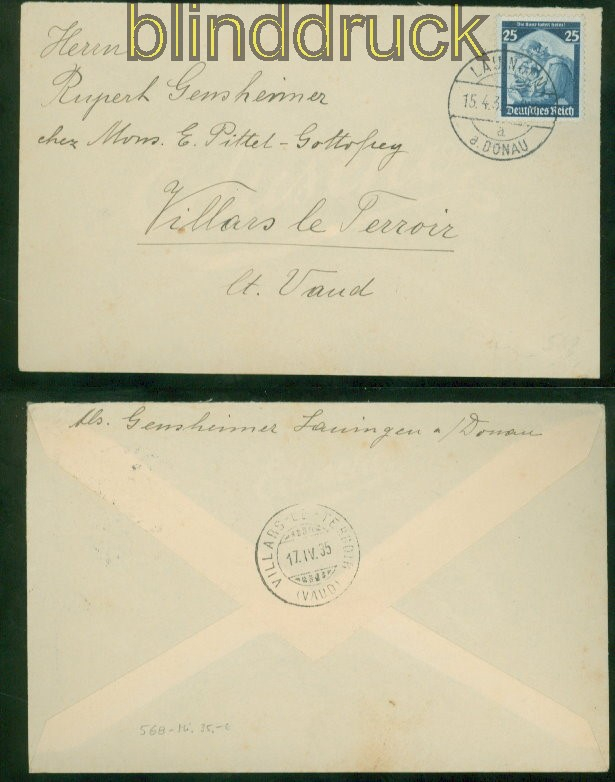 blinddruck
Herrn
Rupert Gensheimer
chez Mons. E. Pittet-Gottofrey
Villars le Terroir
Ct. Vaud
Die Saar kehrt heim!
25 25
Deutsches Reich
LAUINGEN
15.4.3
a
d. DONAU
Abs. Gensheimer Lauingen a/Donau
VILLARS-LE-TERROIR
17.IV.35
(VAUD)
568 - Mi. 25,- €